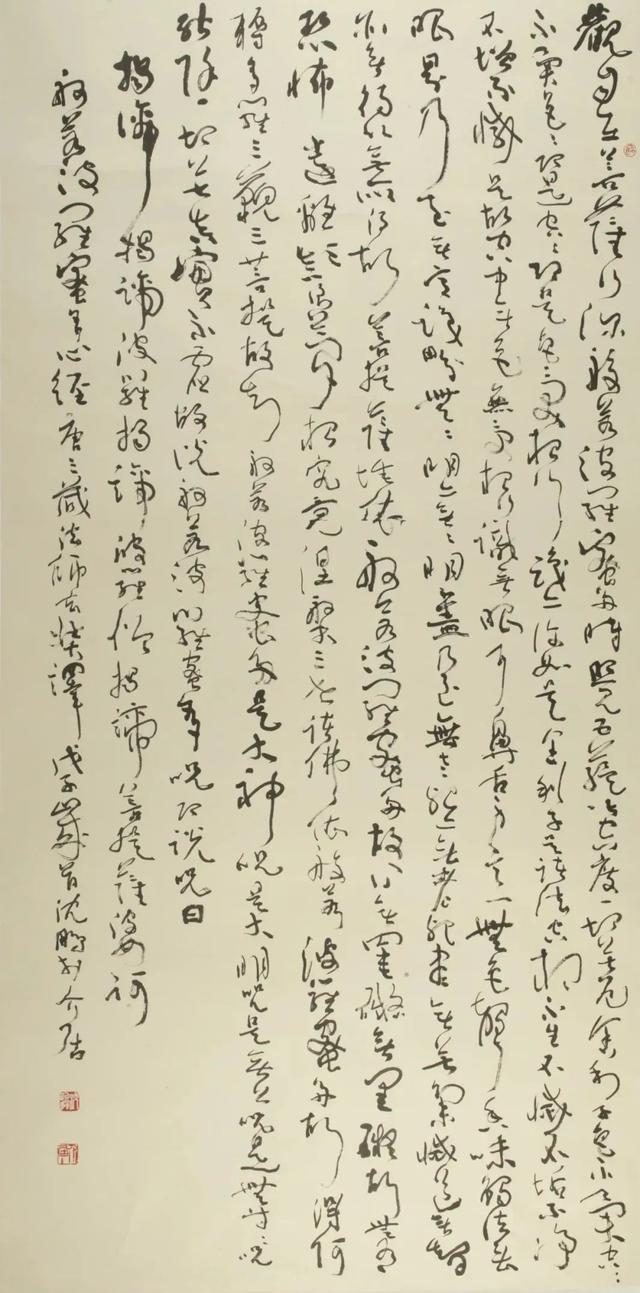 觀自在菩薩行深般若波羅蜜多時照見五蘊皆空度一切苦厄舍利子色不異空空
不異色色即是空空即是色受想行識亦復如是舍利子是諸法空相不生不滅不垢不淨
不增不減是故空中無色無受想行識無眼耳鼻舌身意無色聲香味觸法無
眼界乃至無意識界無無明亦無無明盡乃至無老死亦無老死盡無苦集滅道無智
亦無得以無所得故菩提薩埵依般若波羅蜜多故心無罣礙無罣礙故無有
恐怖遠離顛倒夢想究竟涅槃三世諸佛依般若波羅蜜多故得阿
耨多羅三藐三菩提故知般若波羅蜜多是大神呪是大明呪是無上呪是無等等呪
能除一切苦真實不虛故說般若波羅蜜多呪即說呪曰
揭諦揭諦波羅揭諦波羅僧揭諦菩提薩婆訶
般若波羅蜜多心經唐三藏法師玄奘譯戊子歲首沈鵬於介居